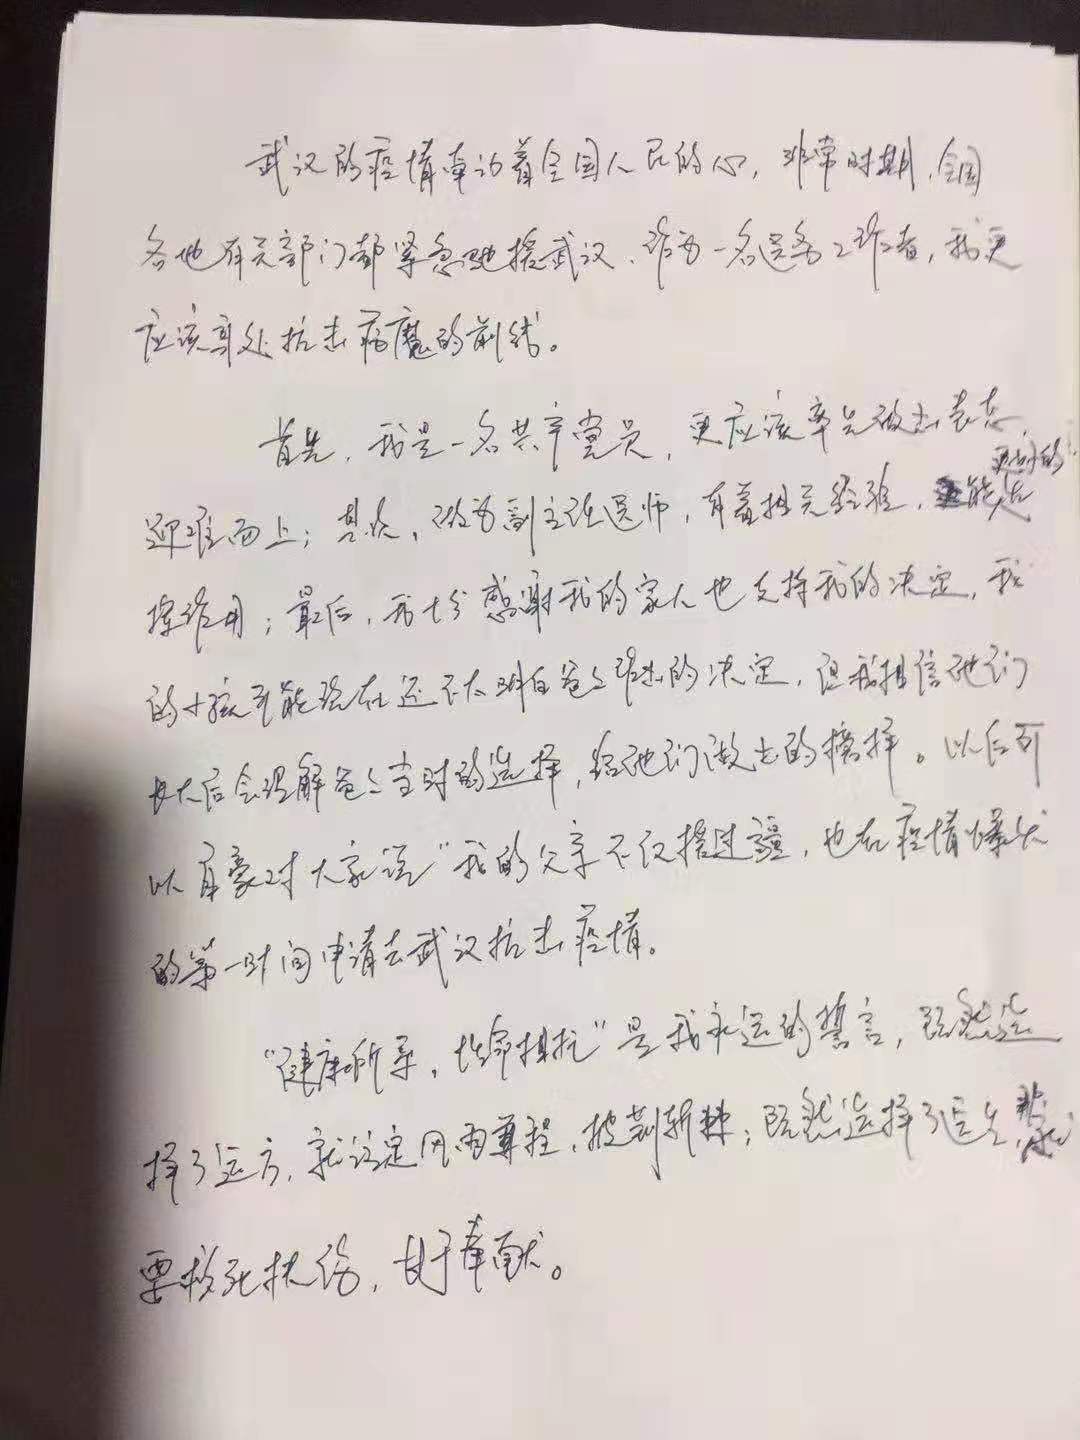 武汉的疫情牵动着全国人民的心，非常时期，全国
各地有关部门都紧急驰援武汉、作为一名医务工作者，我更
应该身处抗击病魔的前线。
首先，我是一名共产党员，更应该率先做出表态，
迎难而上；其次，做为副主任医师，有着相关经验，能更好的发
挥作用；最后，我十分感谢我的家人也支持我的决定，我
的小孩可能现在还不太明白爸爸作出的决定，但我相信他们
长大后会理解爸爸当时的选择，给他们做出的榜样。以后可
以自豪对大家说“我的父亲不仅援过疆，也在疫情爆发
的第一时间申请去武汉抗击疫情。
“健康所系，性命相托”是我永远的誓言，既然选
择了远方，就注定风雨兼程，披荆斩棘；既然选择了医生，就
要救死扶伤，甘于奉献。